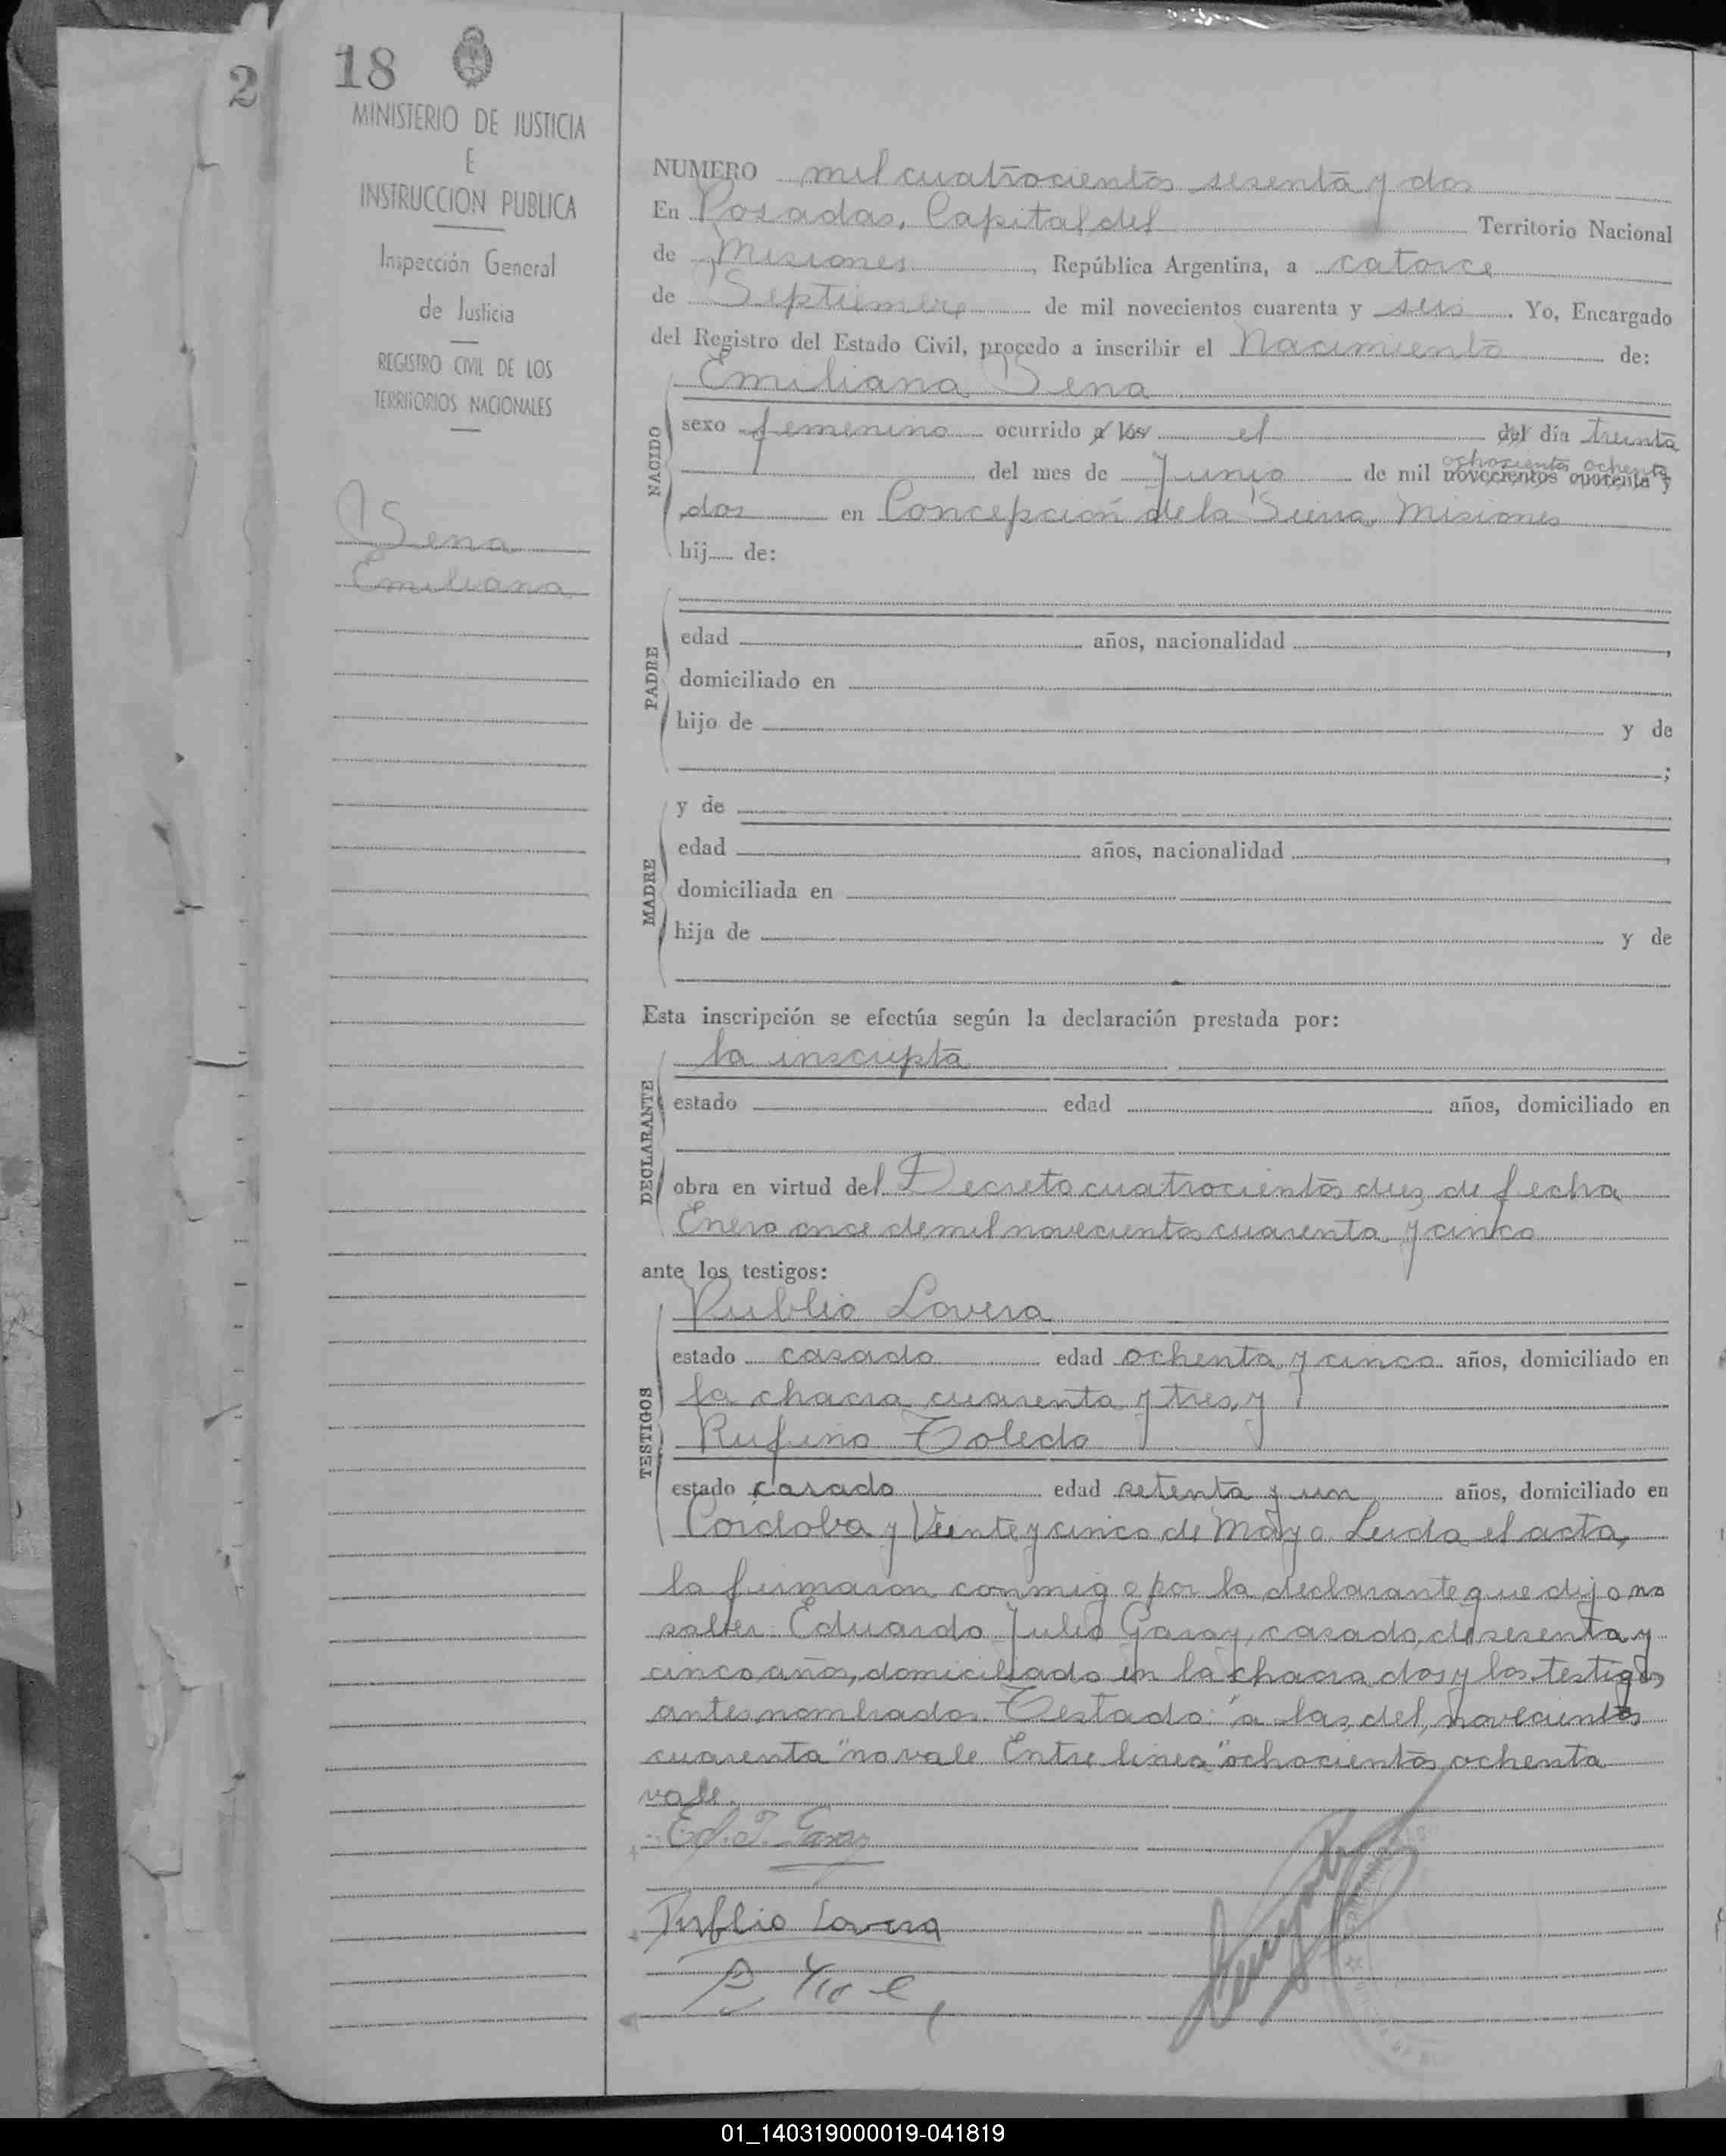 2
18
MINISTERIO DE JUSTICIA
E
INSTRUCCION PUBLICA
Inspección General
de Justicia
REGISTRO CIVIL DE LOS
TERRITORIOS NACIONALES
Sena
Emiliana
NUMERO mil cuatrocientos sesenta y dos
En Posadas, Capital del Territorio Nacional
de Misiones, República Argentina, a catorce
de Septiembre de mil novecientos cuarenta y seis. Yo, Encargado
del Registro del Estado Civil, procedo a inscribir el Nacimiento de:
Emiliana Sena
NACIDO
sexo femenino ocurrido a las el del día treinta
ochocientos ochenta
del mes de Junio de mil novecientos cuarenta y
dos en Concepción de la Sierra, Misiones
hij de:
PADRE
edad años, nacionalidad ,
domiciliado en
hijo de y de
;
MADRE
y de
edad años, nacionalidad ,
domiciliada en
hija de y de
Esta inscripción se efectúa según la declaración prestada por:
DECLARANTE
la inscripta
estado edad años, domiciliado en
obra en virtud del Decreto cuatrocientos diez de fecha
Enero once de mil novecientos cuarenta y cinco
ante los testigos:
TESTIGOS
Publio Lovera
estado casado edad ochenta y cinco años, domiciliado en
la chacra cuarenta y tres, y
Rufino Toledo
estado casado edad setenta y un años, domiciliado en
Córdoba y Veinte y cinco de Mayo. Leida el acta,
la firmaron conmigo por la declarante que dijo no
saber Eduardo Julio Garay, casado, de sesenta y
cinco años, domiciliado en la chacra dos y los testigos
antes nombrados. Testado: "a las, del, novecientos
cuarenta" no vale. Entre linea "ochocientos ochenta
vale.
Ed. J. Garay
Publio Lovera
01_140319000019-041819